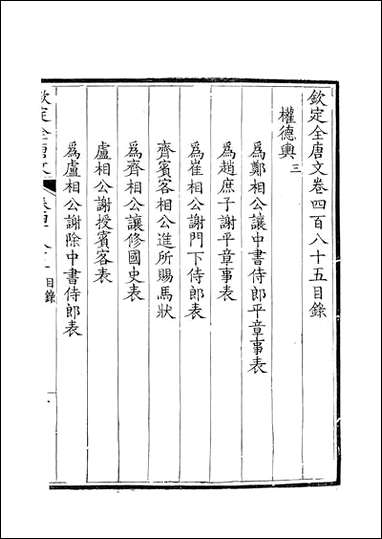 欽定全唐文卷四百八十五目錄
權德輿 三
爲鄭相公讓中書侍郎平章事表
爲趙庶子謝平章事表
爲崔相公謝門下侍郎表
齊賓客相公進所賜馬狀
爲齊相公讓修國史表
盧相公謝授賓客表
爲盧相公謝除中書侍郎表
欽定全唐文
目錄